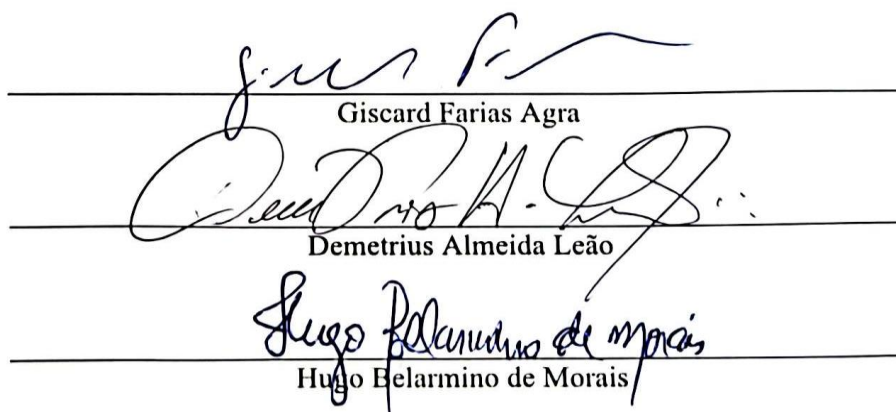 Giscard Farias Agra
Demetrius Almeida Leão
Hugo Belarmino de Morais
Hugo Belarmino de Morais